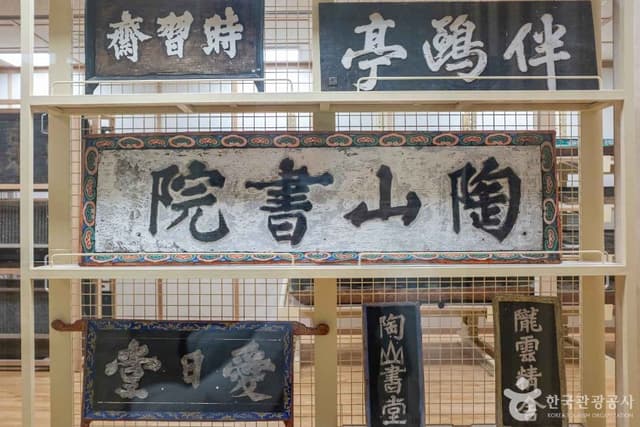 時習齋
伴鷗亭
陶山書院
愛日堂
陶山書堂
隴雲精
한국관광공사
KOREA TOURISM ORGANIZATION